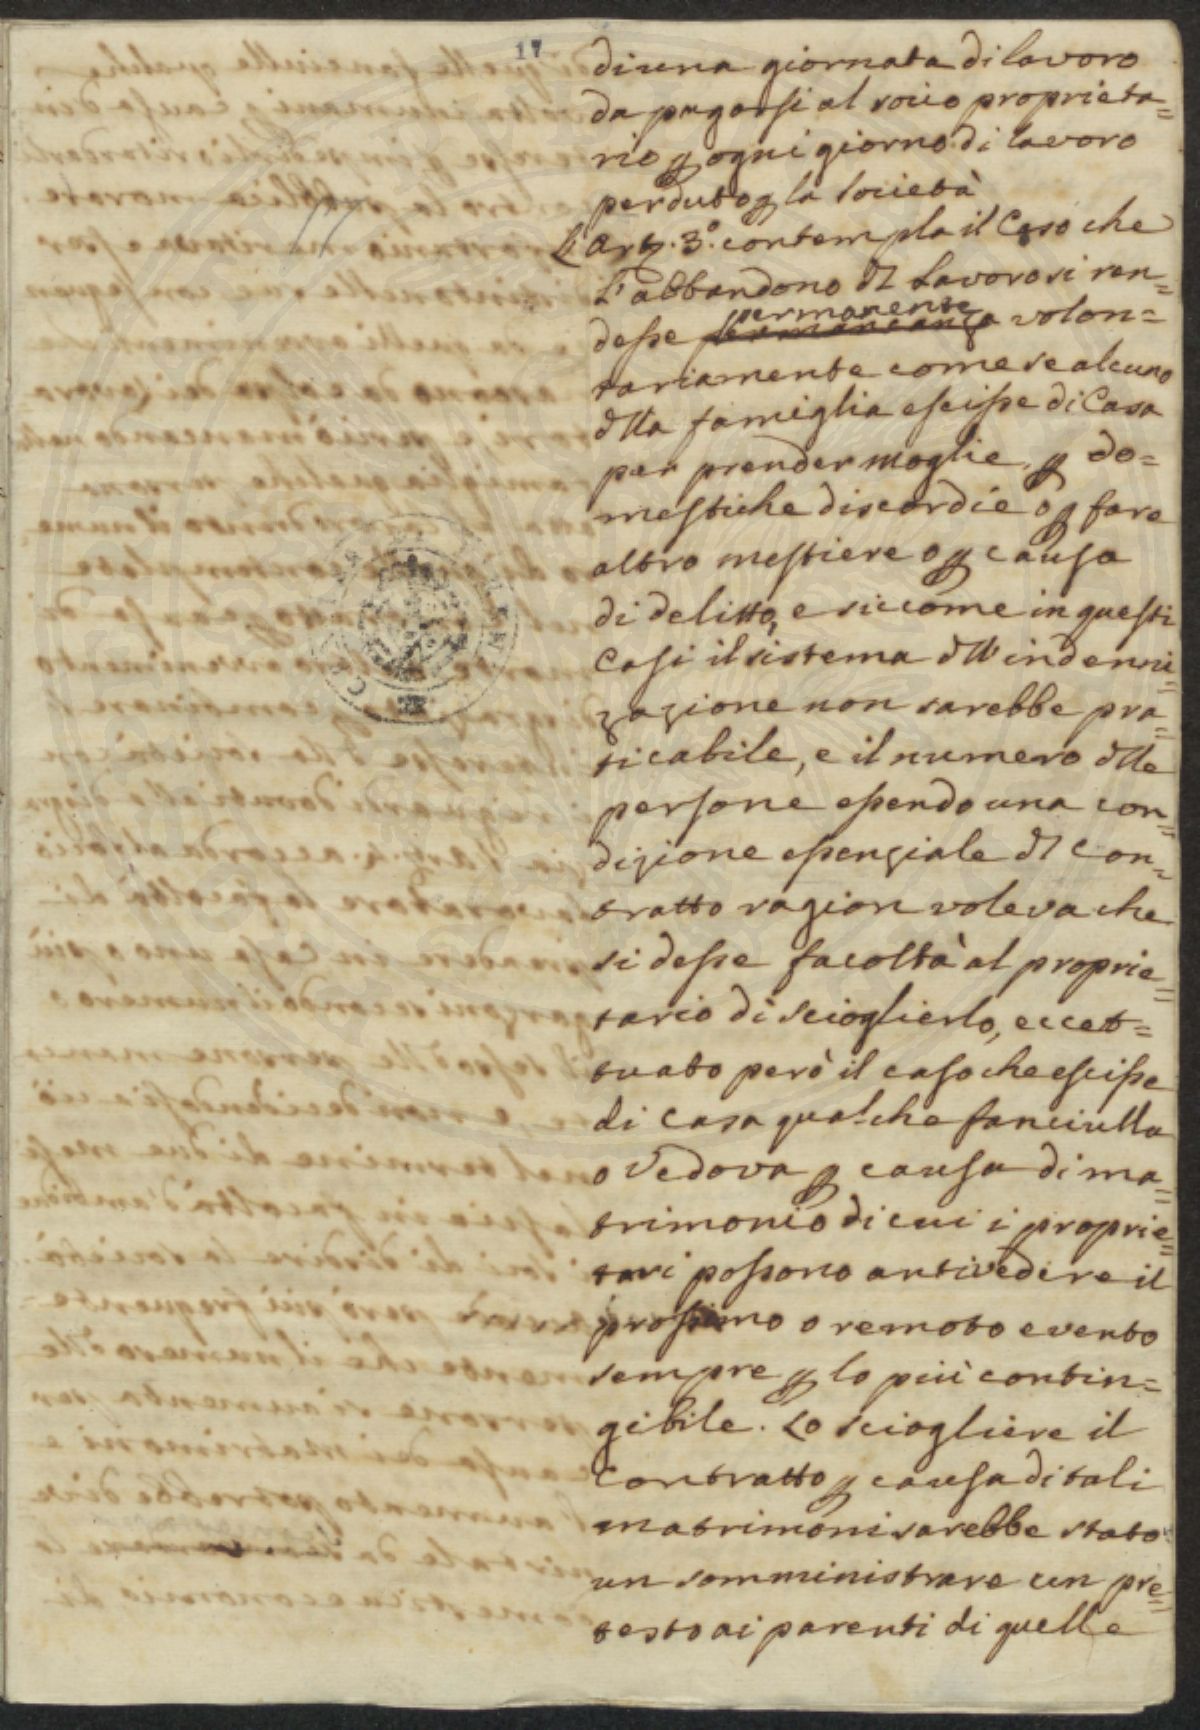 17
di una giornata di lavoro
da pagarsi al socio proprieta=
rio p ogni giorno di lavoro
perduto p la società
L'Art. 3.° contempla il Caso che
l'abbandono dl Lavoro si ren=
desse permanente volon=
tariamente come se alcuno
dlla famiglia escisse di Casa
per prender moglie, p do=
mestiche discordie o p fare
altro mestiere o p causa
di delitto, e siccome in questi
Casi il sistema dll'indenni=
zazione non sarebbe pra=
ticabile, e il numero dlle
persone essendo una con=
dizione essenziale dl Con=
tratto ragion voleva che
si desse facoltà al proprie=
tario di scioglierlo, eccet=
tuato però il caso che escisse
di Casa qualche fanciulla
o Vedova p causa di ma=
trimonio di cui i proprie=
tari possono antivedere il
prossimo o remoto evento
sempre p lo più contin=
gibile. Lo sciogliere il
Contratto p causa di tali
matrimoni sarebbe stato
un somministrare un pre=
testo ai parenti di quelle